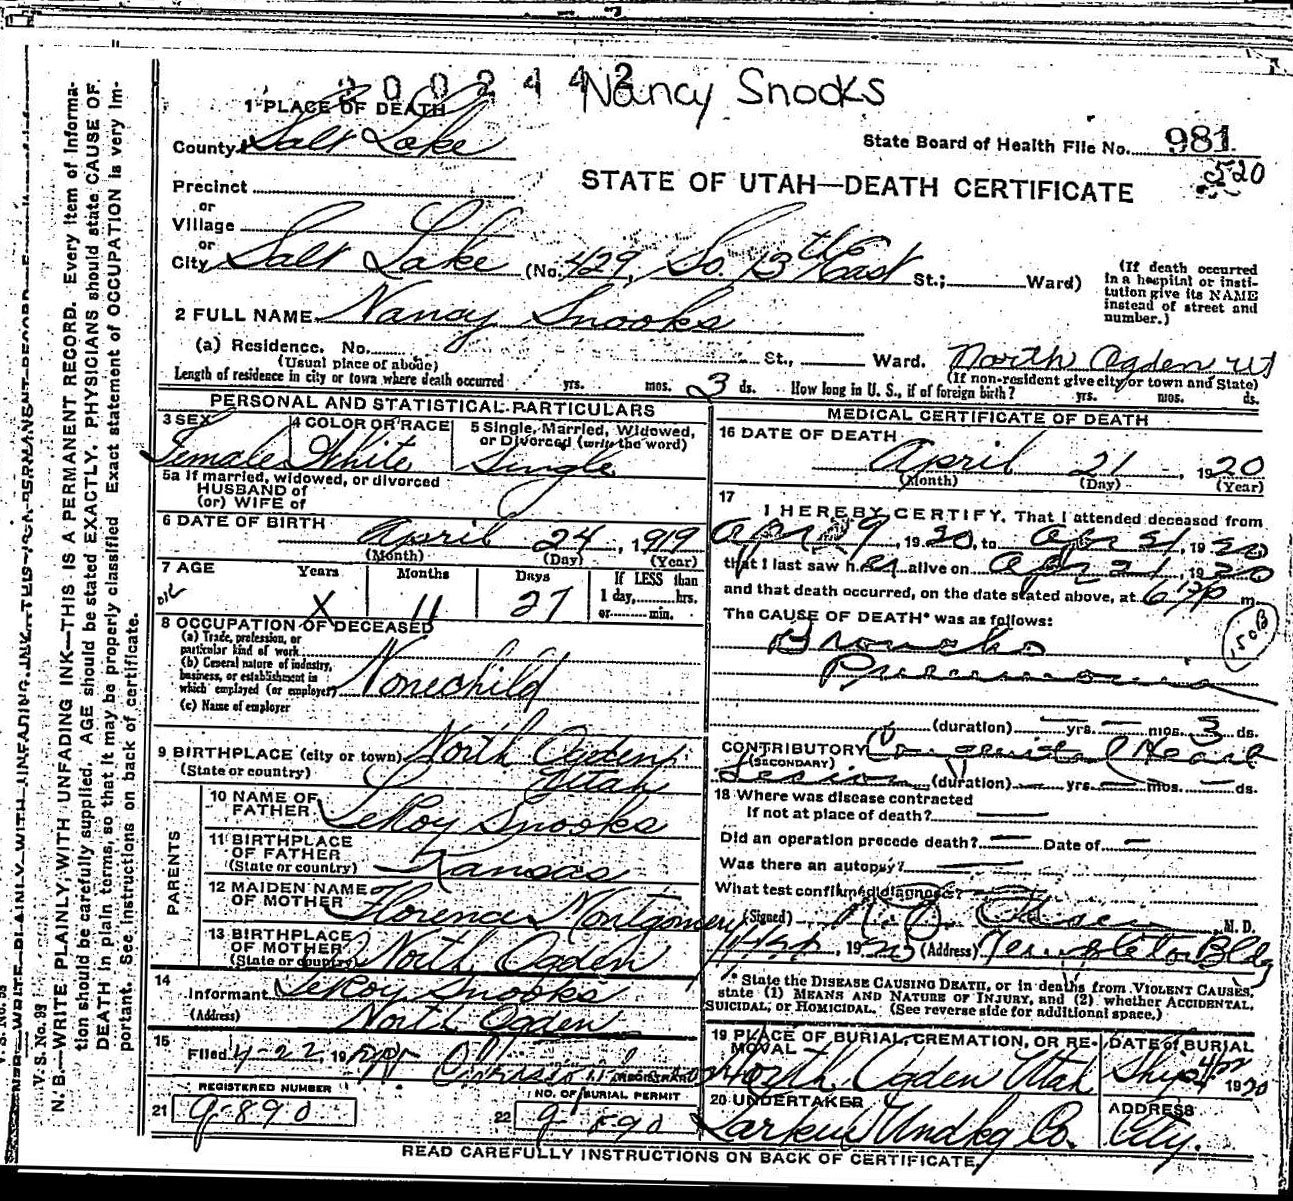 2 0 0 2 4 4 2 Nancy Snooks
1 PLACE OF DEATH
County Salt Lake
State Board of Health File No. 981
520
STATE OF UTAH—DEATH CERTIFICATE
Precinct
or
Village
or
City Salt Lake (No. 429 So. 13th East St.; Ward)
(If death occurred in a hospital or institution give its NAME instead of street and number.)
2 FULL NAME Nancy Snooks
(a) Residence. No. St., Ward. North Ogden Ut
(Usual place of abode) (If non-resident give city or town and State)
Length of residence in city or town where death occurred yrs. mos. 3 ds. How long in U. S., if of foreign birth? yrs. mos. ds.
PERSONAL AND STATISTICAL PARTICULARS
3 SEX Female
4 COLOR OR RACE White
5 Single, Married, Widowed, or Divorced (write the word) Single
5a If married, widowed, or divorced
HUSBAND of
(or) WIFE of
6 DATE OF BIRTH April 24, 1919
(Month) (Day) (Year)
7 AGE Years X Months 11 Days 27
If LESS than
1 day, hrs.
or min.
8 OCCUPATION OF DECEASED
(a) Trade, profession, or
particular kind of work
(b) General nature of industry,
business, or establishment in
which employed (or employer) None child
(c) Name of employer
9 BIRTHPLACE (city or town) North Ogden
(State or country) Utah
PARENTS
10 NAME OF FATHER LeRoy Snooks
11 BIRTHPLACE OF FATHER (State or country) Kansas
12 MAIDEN NAME OF MOTHER Florence Montgomery
13 BIRTHPLACE OF MOTHER (State or country) North Ogden
14
Informant LeRoy Snooks
(Address) North Ogden
15
Filed 4-22, 19 REGISTRAR
REGISTERED NUMBER
21 g-890
NO. OF BURIAL PERMIT
22 g 890
MEDICAL CERTIFICATE OF DEATH
16 DATE OF DEATH
April 21, 1920
(Month) (Day) (Year)
17
I HEREBY CERTIFY, That I attended deceased from
Apr 19, 1920, to Apr 21, 1920
that I last saw her alive on Apr 21, 1920
and that death occurred, on the date stated above, at m.
The CAUSE OF DEATH* was as follows:
Broncho
Pneumonia
(duration) yrs. mos. 3 ds.
CONTRIBUTORY Congenital Heart
(SECONDARY)
Lesion (duration) yrs. mos. ds.
18 Where was disease contracted
If not at place of death?
Did an operation precede death? Date of
Was there an autopsy?
What test confirmed diagnosis?
(Signed) M. D.
19 20 (Address) Templeton Bldg
* State the DISEASE CAUSING DEATH, or in deaths from VIOLENT CAUSES,
state (1) MEANS AND NATURE OF INJURY, and (2) whether ACCIDENTAL,
SUICIDAL, or HOMICIDAL. (See reverse side for additional space.)
19 PLACE OF BURIAL, CREMATION, OR REMOVAL North Ogden Utah
DATE of BURIAL Ship 4/22 1920
20 UNDERTAKER Larkin Undkg Co.
ADDRESS City.
READ CAREFULLY INSTRUCTIONS ON BACK OF CERTIFICATE
V. S. No. 99
N. B.—WRITE PLAINLY, WITH UNFADING INK—THIS IS A PERMANENT RECORD. Every item of Informa-
tion should be carefully supplied. AGE should be stated EXACTLY. PHYSICIANS should state CAUSE OF
DEATH in plain terms, so that it may be properly classified. Exact statement of OCCUPATION is very im-
portant. See instructions on back of certificate.